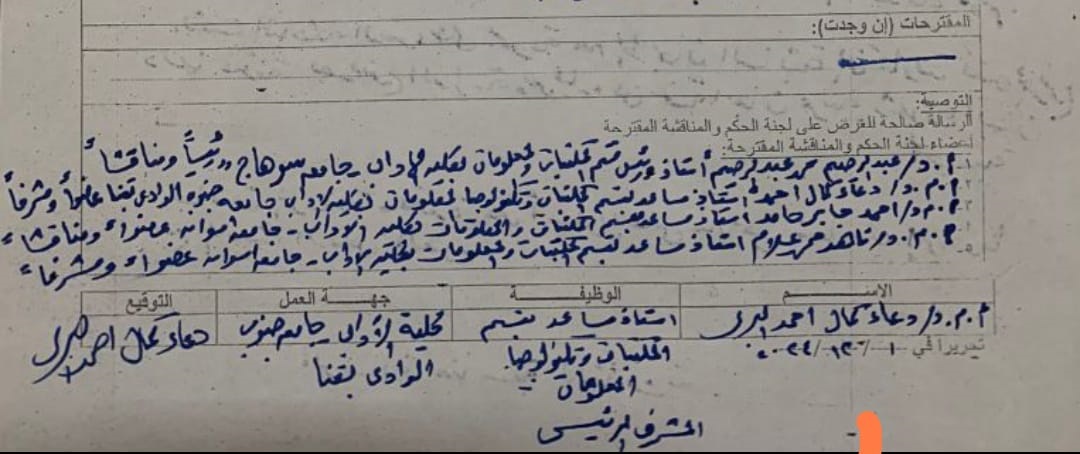 المقترحات (إن وجدت):
التوصية:
الرسالة صالحة للعرض على لجنة الحكم والمناقشة المقترحة
أعضاء لجنة الحكم والمناقشة المقترحة:
١- أ.د/ عبدالرحيم محمد عبدالرحيم أستاذ ورئيس قسم المكتبات والمعلومات بكلية الآداب - جامعة سوهاج "رئيساً ومناقشاً
٢- أ.م.د/ دعاء كمال احمد أستاذ مساعد بقسم المكتبات وتكنولوجيا المعلومات بكلية الآداب جامعة جنوب الوادي بقنا عضواً ومشرفاً
٣- أ.م.د/ احمد جابر حامد استاذ مساعد بقسم المكتبات والمعلومات بكلية الآداب - جامعة اسوان عضواً ومناقشاً
أ.م.د/ ناهد محمد علام استاذ مساعد بقسم المكتبات والمعلومات بكلية الآداب - جامعة اسوان عضواً ومشرفاً
الاسم الوظيفة جهة العمل التوقيع
أ.م.د/ دعاء كمال احمد استاذ مساعد بقسم المكتبات وتكنولوجيا المعلومات كلية الآداب جامعة جنوب الوادي بقنا دعاء كمال احمد
المشرف الرئيسي
تحريرا في ١٠/١٢/٢٠٢٤